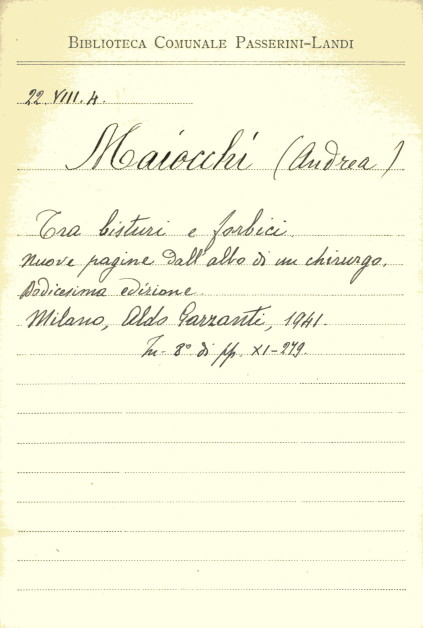 BIBLIOTECA COMUNALE PASSERINI-LANDI
22.VIII.4.
Maiocchi (Andrea)
Tra bisturi e forbici.
Nuove pagine dall'albo di un chirurgo.
Dodicesima edizione.
Milano, Aldo Garzanti, 1941.
In-8° di pp. XI-279.